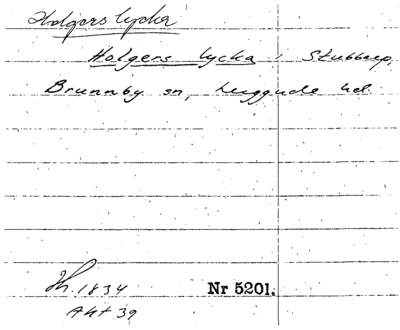 Holgers lycka
Holgers lycka i Stubbarp,
Brunnby sn, Luggude hd.
1834
Nr 5201.
Akt 39